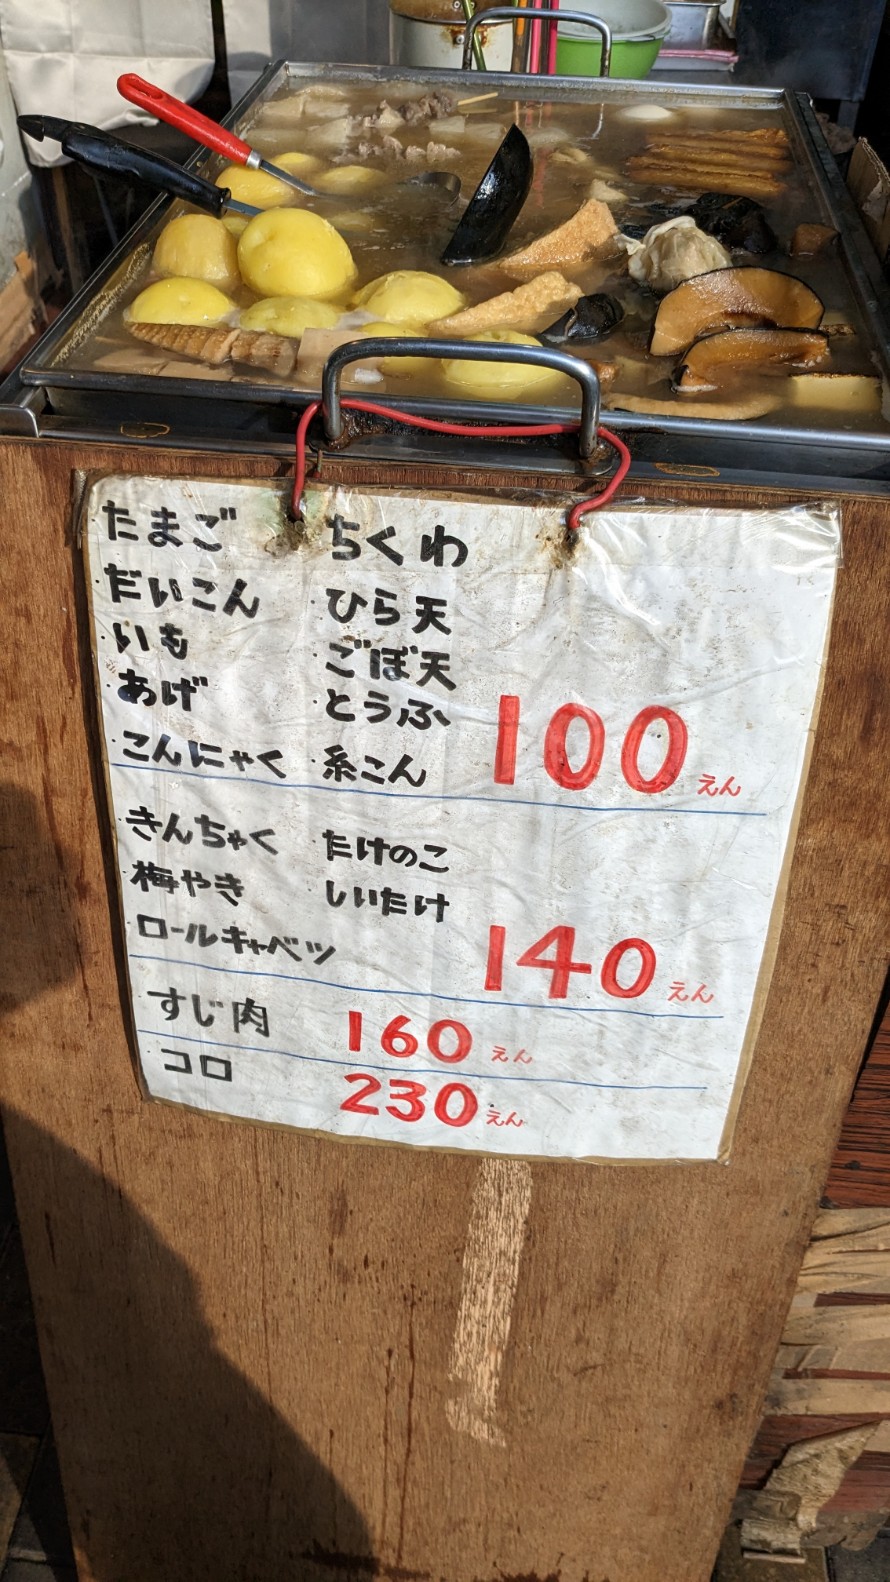 たまご ちくわ
だいこん ひら天
いも ごぼ天
あげ とうふ
こんにゃく 糸こん 100えん
きんちゃく たけのこ
梅やき しいたけ
ロールキャベツ 140えん
すじ肉 160えん
コロ 230えん